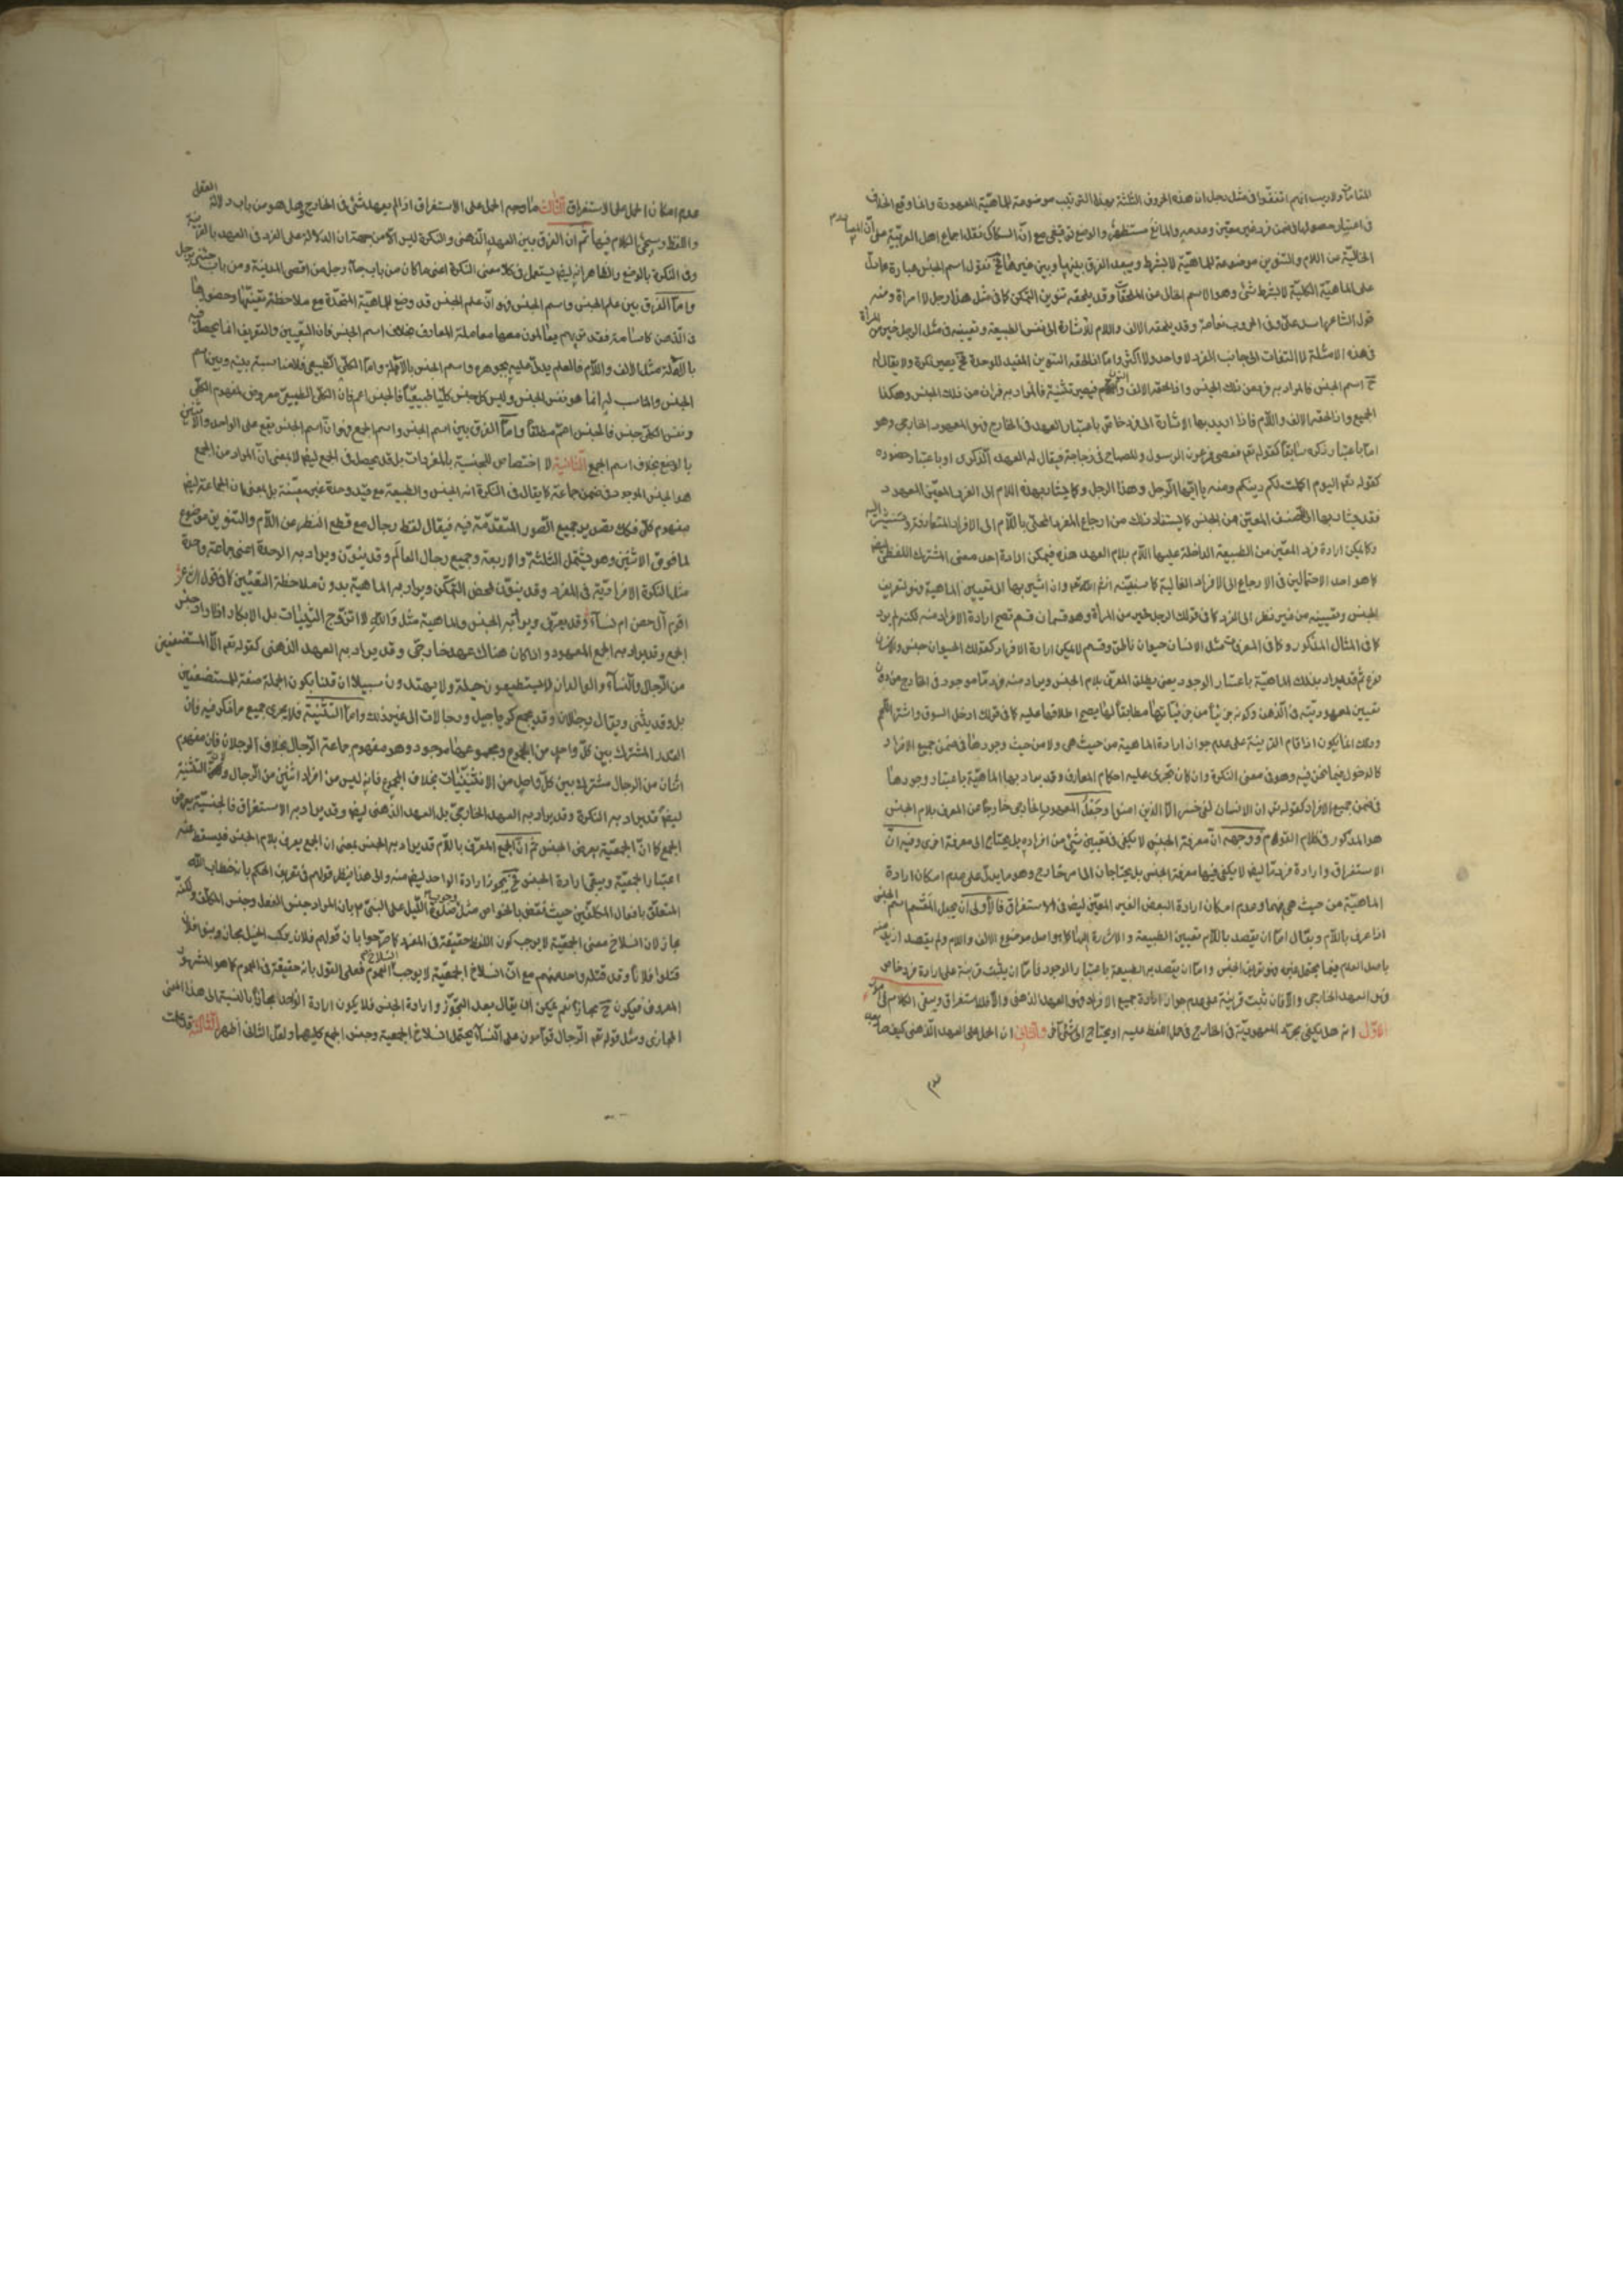 المقامات ولا ريب انهم اتفقوا في مثل رجل ان هذه الحروف الثلثة بهذا الترتيب موضوعة للماهية المعهودة وانما وقع الخلاف
في اعتبار حصولها في ضمن فرد غير معين وعدمه والمانع مستظهر والوضع توقيفي مع ان السكاكي نقل اجماع اهل العربية على ان المصادر
الخالية من اللام والتنوين موضوعة للماهية لا بشرط ويبعد الفرق بينها وبين غيرها فح نقول اسم الجنس عبارة عما دل
على الماهية الكلية لا بشرط شئ وهو الاسم الخالي من الملحقات وقد يلحقه تنوين التمكن كما في مثل هذا رجل لا امراة ومنه
قول الشاعر اسد علي وفي الحروب نعامة وقد يلحقه الالف واللام للاشارة الى نفس الطبيعة وتعيينه في مثل الرجل خير من المراة
ففي هذه الامثلة لا التفات الى جانب الفرد لا واحد ولا اكثر واما اذا لحقه التنوين المفيد للوحدة فح يصير نكرة ولا يقال له
ح اسم الجنس فالمراد به فرد من ذلك الجنس واذا لحقه الالف والنون فيصير تثنية فالمراد به فردان من ذلك الجنس وهكذا
الجمع واذا لحقه الالف واللام فاذا اريد بها الاشارة الى فرد خاص باعتبار العهد في الخارج فهو المعهود الخارجي وهو
اما باعتبار ذكره سابقا كقوله تعم فعصى فرعون الرسول والمصباح في زجاجة فيقال له العهد الذكري او باعتبار حضوره
كقوله تعم اليوم اكملت لكم دينكم ومنه يا ايها الرجل وهذا الرجل وكما يشار بهذه اللام الى الفرد المعين المعهود
فقد يشار بها الى الصنف المعين من الجنس كما يستفاد ذلك من ارجاع المفرد المحلى باللام الى الافراد المتعارفة وسنشير اليه
وكما يمكن ارادة فرد المعين من الطبيعة الداخلة عليها اللام بلام العهد هذه فيمكن ارادة احد معنى المشترك اللفظي ايضا
كما هو احد الاحتمالين في الارجاع الى الافراد الغالبة كما سنبينه انش الله تعم وان اشير بها الى تعيين الماهية فهو لتعريف
الجنس وتعيينه من غير نظر الى الفرد كما في قولك الرجل خير من المراة وهو قسمان قسم تصح ارادة الافراد منه لكنه لم يرد
كما في المثال المذكور وكما في المعرف مثل الانسان حيوان ناطق وقسم لا يمكن ارادة الافراد كقولك الحيوان جنس والانسان
نوع ثم قد يراد بذلك الماهية باعتبار الوجود يعني يطلق المعرف بلام الجنس ويراد منه فرد ما موجود في الخارج من دون
تعيين لمعهوديته في الذهن وكونه جزئيا من جزئياتها مطابقا لها يصح اطلاقها عليه كما في قولك ادخل السوق واشتر اللحم
وذلك انما يكون اذا قام القرينة على عدم جواز ارادة الماهية من حيث هي ولا من حيث وجودها في ضمن جميع الافراد
كالدخول فيما نحن فيه وهو في معنى النكرة وان كان تجري عليه احكام المعارف وقد يراد بها الماهية باعتبار وجودها
في ضمن جميع الافراد كقوله تعم ان الانسان لفي خسر الا الذين امنوا وجعل المعهود الخارجي خارجا من المعرف بلام الجنس
هو المذكور في كلام القوم ووجهه ان معرفة الجنس لا يكفي في تعيين شئ من افراده بل يحتاج الى معرفة اخرى وفيه ان
الاستغراق وارادة فرد ما ايضا لا يكفي فيها معرفة الجنس بل يحتاجان الى امر خارج وهو ما يدل على عدم امكان ارادة
الماهية من حيث هي فيهما وعدم امكان ارادة البعض الغير المعين ايضا في الاستغراق فالاولى ان يجعل المقسم اسم الجنس
اذا عرف باللام ويقال اما ان يقصد باللام تعيين الطبيعة والاشارة اليها كما هو اصل موضوع الالف واللام ولم يقصد ازيد منه
باصل العدم فيما يحتمل غيره فهو تعريف الجنس واما ان يقصد به الطبيعة باعتبار الوجود فاما ان يثبت قرينة على ارادة فرد خاص
فهو العهد الخارجي والا فان ثبت قرينة على عدم جواز ارادة جميع الافراد فهو العهد الذهني والا فالاستغراق وبقي الكلام في امور
الاول انه هل يكفي مجرد المعهودية في الخارج في حمل اللفظ عليه او يحتاج الى شئ اخر والثاني ان الحمل على العهد الذهني كيف صار بعد
عدم امكان الحمل على الاستغراق الثالث ما وجه الحمل على الاستغراق اذا لم يعهد شئ في الخارج وهل هو من باب دلالة العقل
واللفظ وسيجئ الكلام فيها ثم ان الفرق بين العهد الذهني والنكرة ليس الا من جهة ان الدلالة على الفرد في العهد بالقرينة
وفي النكرة بالوضع والظاهر انه ايضا يستعمل في كلا معنى النكرة اعني ما كان من باب جاء رجل من اقصى المدينة ومن باب جئني برجل
واما الفرق بين علم الجنس واسم الجنس فهو ان علم الجنس قد وضع للماهية المتحدة مع ملاحظة تعينها وحضورها
في الذهن كاسامة فقد تراهم يعاملون معها معاملة المعارف بخلاف اسم الجنس فان التعيين والتعريف انما يحصل فيه
بالآلة مثل الالف واللام فالعلم يدل عليه بجوهره واسم الجنس بالآلة واما الكلي الطبيعي فلا مناسبة بينه وبين اسم
الجنس والمناسب له انما هو نفس الجنس وليس كل جنس كليا طبيعيا فالجنس اعم فان الكلي الطبيعي معروض لمفهوم الكلي
ونفس الكلي جنس فالجنس اعم مطلقا واما الفرق بين اسم الجنس واسم الجمع فهو ان اسم الجنس يقع على الواحد والاثنين
بالوضع بخلاف اسم الجمع الثانية لا اختصاص للجنسية بالمفردات بل قد يحصل في الجمع ايضا لا بمعنى ان المراد من الجمع
هو الجنس الموجود في ضمن جماعة كما يقال في النكرة انه الجنس والطبيعة مع قيد وحدة غير معينة بل بمعنى ان الجماعة ايضا
مفهوم كلي فلك تصوير جميع الصور المتقدمة فيه فيقال لفظ رجال مع قطع النظر عن اللام والتنوين موضوع
لما فوق الاثنين وهو يشتمل الثلثة والاربعة وجميع رجال العالم وقد ينون ويراد به الوحدة اعني جماعة واحدة
مثل النكرة الافرادية في المفرد وقد ينون لمحض التمكن ويراد به الماهية بدون ملاحظة التعيين كما في قول الشاعر
اقوم آل حصن ام نساء وقد يعرف ويراد به الجنس والماهية مثل والله لا اتزوج الثيبات بل الابكار اذا اراد جنس
الجمع وقد يراد به الجمع المعهود واذا كان هناك عهد خارجي وقد يراد به العهد الذهني كقوله تعم الا المستضعفين
من الرجال والنساء والوالدان لا يستطيعون حيلة ولا يهتدون سبيلا ان قلنا بكون الجملة صفة للمستضعفين
بل وقد يثنى ويقال رجالان وقد يجمع كرجاجيل ورجالات الى غير ذلك واما التثنية فلا يجري جميع ما ذكر فيه فان
القدر المشترك بين كل واحد من الجموع ومجموعها موجود وهو مفهوم جماعة الرجال بخلاف الرجلان فان مفهوم
اثنان من الرجال مشترك بين كل واحد من الاثنينيات بخلاف المجموع فانه ليس من افراد اثنين من الرجال وهذه التثنية
ايضا قد يراد به النكرة وقد يراد به العهد الخارجي بل العهد الذهني ايضا وقد يراد به الاستغراق فالجنسية يعرض
الجمع كما ان الجمعية يعرض الجنس ثم ان الجمع المعرف باللام قد يراد به الجنس بمعنى ان الجمع يعرف بلام الجنس فيسقط عنه
اعتبار الجمعية ويبقى ارادة الجنس فح يجوز ارادة الواحد ايضا منه والى هذا ينظر قولهم في تعريف الحكم بانه خطاب الله
المتعلق بافعال المكلفين حيث نقض بالخواص مثل وجوب صلوة الليل على النبي ص بان المراد جنس الفعل وجنس المكلف ولكنه
مجاز لان انسلاخ معنى الجمعية لا يوجب كون اللفظ حقيقة في المفرد كما صرحوا بان قولهم فلان يركب الخيل مجاز وبنو فلان
قتلوا فلانا وقد قتله واحد منهم مع ان انسلاخ الجمعية لا يوجب انسلاخ العموم فعلى القول بانه حقيقة في العموم كما هو المشهور
المعروف فيكون ح مجازا نعم يمكن ان يقال بعد التجوز وارادة الجنس فلا يكون ارادة الواحد مجازا بالنسبة الى هذا المعنى
المجازي ومثل قوله تعم الرجال قوامون على النساء يحتمل انسلاخ الجمعية وجنس الجمع كليهما ولعل الثاني اظهر الثالثة قد ثبت